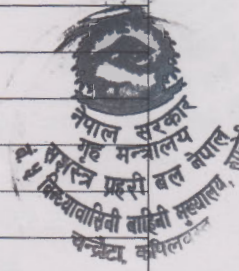 नेपाल सरकार
गृह मन्त्रालय
सशस्त्र प्रहरी बल नेपाल
विन्ध्यवासिनी बाहिनी मुख्यालय,
चन्द्रौटा, कपिलवस्तु